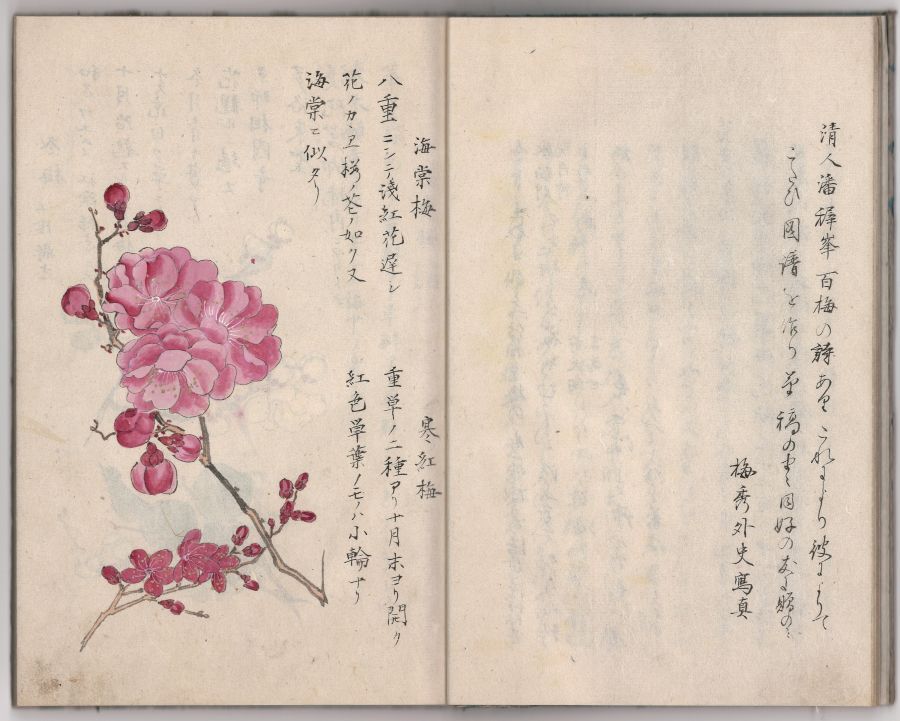 清人潘稺峯百梅の詩あり これにより彼によりて
こたひ図譜を作り草稿のまゝ同好の友に贈のミ
梅秀外史寫真
海棠梅
八重ニシテ淺紅花遅シ
花ノカヽリ桜ノ花ノ如ク又
海棠ニ似タリ
寒紅梅
重単ノ二種アリ十月末ヨリ開ク
紅色単葉ノモノハ小輪ナリ